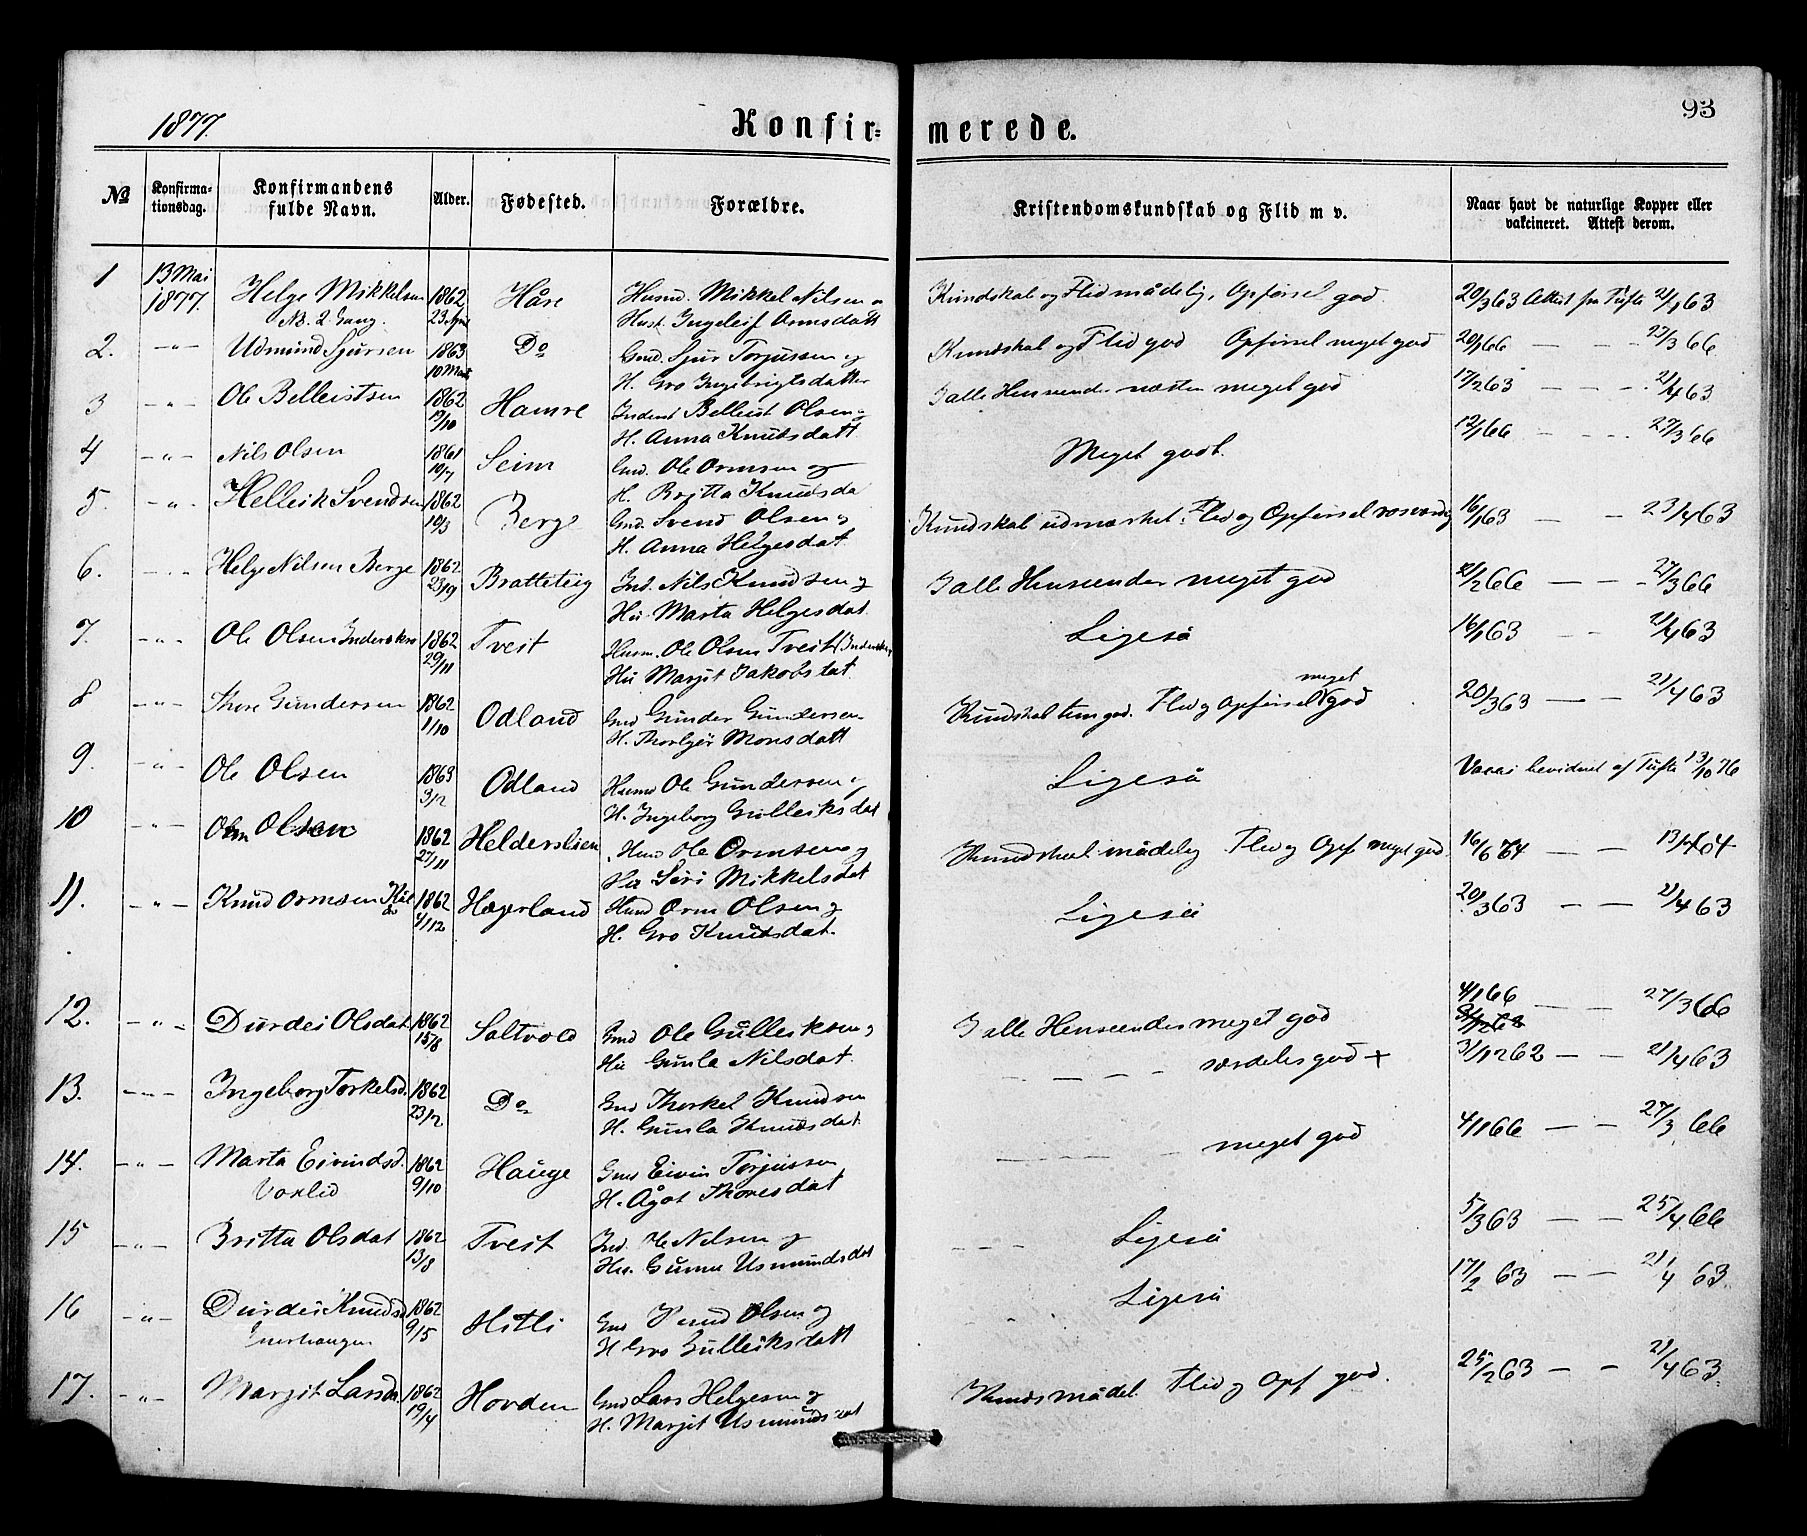 1877.
Konfir=
merede.
93
No
Konfirma-
tionsdag.
Konfirmandens
fulde Navn.
Alder.
Fødested.
Forældre.
Kristendomskundskab og Flid m v.
Naar havt de naturlige Kopper eller
vakcineret. Attest derom.
1 13 Mai Helge Mikkelsen 1862 Håre Husm. Mikkel Nilsen o Kundskab og Flid mådelig, Opførsel god 20/3 63 Attest fra Tufte 21/4 63
1877. No. 2. Gang. 23 April Hust. Ingeleif Ormsdatt
2. -"- Udmund Sjursen 1863 Do Gmd. Sjur Torjussen og Kundskab og Flid god Opførsel meget god 20/1 66 — — 27/3 66
10 Mart H. Gro Ingebrigtsdatter
3 -"- Ole Belleistsen 1862 Hamre Inderst Belleist Olsen og I alle Henseender næsten meget god 17/2 63 — — 21/4 63
19/10 H. Anna Knutsdatt
4 -"- Nils Olsen 1861 Seim Gmd. Ole Ormsen og Meget godt. 12/1 66 — — 27/3 66
19/7 H. Britta Knudsda
5. -"- Hellesik Svendsen 1862 Berge Gmd. Svend Olsen og Kundskab udmærket, Flid og Opførsel rosværdig 16/1 63 — — 23/4 63
10/3 H. Anna Helgesdat
6. -"- Helge Nilsen Berge 1862 Bratteteig Ind. Nils Knudsen og I alle Henseender meget god 2/2 66 — — 27/3 66
23/9 Hu. Marta Helgesdat.
7. -"- Ole Olsen 1862 Tveit Husm. Ole Olsen Tveit Ligeså 16/1 63 — — 21/4 63
29/11 Hu Marjit Jakobsdat.
8 -"- Thore Gundersen 1862 Odland Gmd Gunder Gundersen Kundskab tem god. Flid og Opførsel meget god 20/3 63 — — 21/4 63
1/10 H. Thorbjør Monsdatt
9. -"- Ole Olsen 1863 Odland Husm Ole Gundersen og Ligeså Vacci bevidnet af Tufte 13/10 76
3/2 H. Ingeborg Gulleiksdat
10 -"- Orm Olsen 1862 Helderslien Husm Ole Ormsen og Kundskab mådelig Flid og Opf meget god 16/6 74 — —
27/11 Hu Siri Mikkelsdat
11. -"- Knud Ormsen 1862 Hægerland Husm Orm Olsen og Ligeså 20/3 63 — — 21/4 63
4/12 H. Gro Knutsdat.
12. -"- Durdei Olsdat 1862 Saltvold Gmd Ole Gulleiksen og I alle Henseender meget god 4/1 66 — — 27/3 66
15/8 Hu Gunla Nilsdat.
13. -"- Ingeborg Torkelsd. 1862 Do Gmd Thorkel Knudsen — — — — særdeles god + 31/12 62 — — 21/4 63
23/12 H. Gunla Knudsdat.
14. -"- Marta Eivindsd. 1862 Hauge Gmd Eivin Torjussen — — — — meget god 4/1 66 — — 27/3 66
Voxlid 9/10 H. Ågot Thoresdat
15 -"- Britta Olsdat 1862 Tveit Ind. Ole Nilsen og — — — Ligeså 5/3 63 — — 25/4 66
13/8 Hu. Gunna Usmundsdat
16 -"- Durdei Knudsd 1862 Hitli Gmd Knud Olsen og Ligeså 17/2 63 — — 21/4 63
9/5 H Gro Gulleiksdatt
17. -"- Marjit Larsda 1862 Hovden Gmd Lars Helgesen og Kunds mådel. Flid og Opf god. 25/2 63 — — 21/4 63.
19/4 H. Marjit Usmundsdat